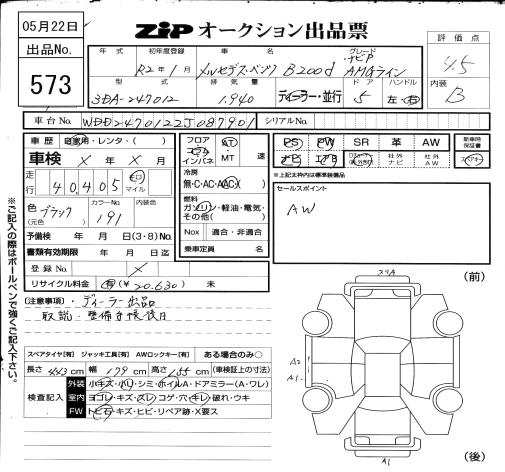 05月22日
出品No.
573
ZiP オークション出品票
年式 初年度登録 車名 グレード
R2年1月 メルセデス・ベンツ B200d ・ナビP AMGライン
型式 排気量 ドア ハンドル
3DA-247012 1.940 ディーラー・並行 5 左・右
評価点
4.5
内装
B
車台No. WDD2470122J087901 シリアルNo.
車歴 自家用・レンタ・( )
車検 × 年 × 月
走行 40405 キロ マイル
色(元色) ブラック カラーNo. 191 内装色
予備検 年 月 日(3・8)No.
書類有効期限 年 月 日迄
登録No. ×
リサイクル料金 有(¥20.630) 未
フロア コラム インパネ AT MT 速
冷房
無・C・AC・AAC( )
燃料
ガソリン・軽油・電気・その他( )
Nox 適合・非適合
乗車定員 名
PS PW SR 革 AW
ナビ エアB 社外ナビ 社外AW
新車時保証書
※上記太枠内は標準装備品
セールスポイント
AW
※ご記入の際はボールペンで強くご記入下さい。
(注意事項)・ディーラー出品
取説・整備手帳後日
スペアタイヤ【有】 ジャッキ工具【有】 AWロックキー【有】 ある場合のみ○
長さ 443 cm 幅 179 cm 高さ 155 cm (車検証上の寸法)
検査記入
外装 小キズ・小凹・シミ・ホイルA・ドアミラー(A・ワレ)
室内 ヨゴレ・キズ・スレ・コゲ・穴・キレ・破れ・ウキ
FW トビ石・キズ・ヒビ・リペア跡・X要ス
(前)
スリA
A2
A1
A1
(後)